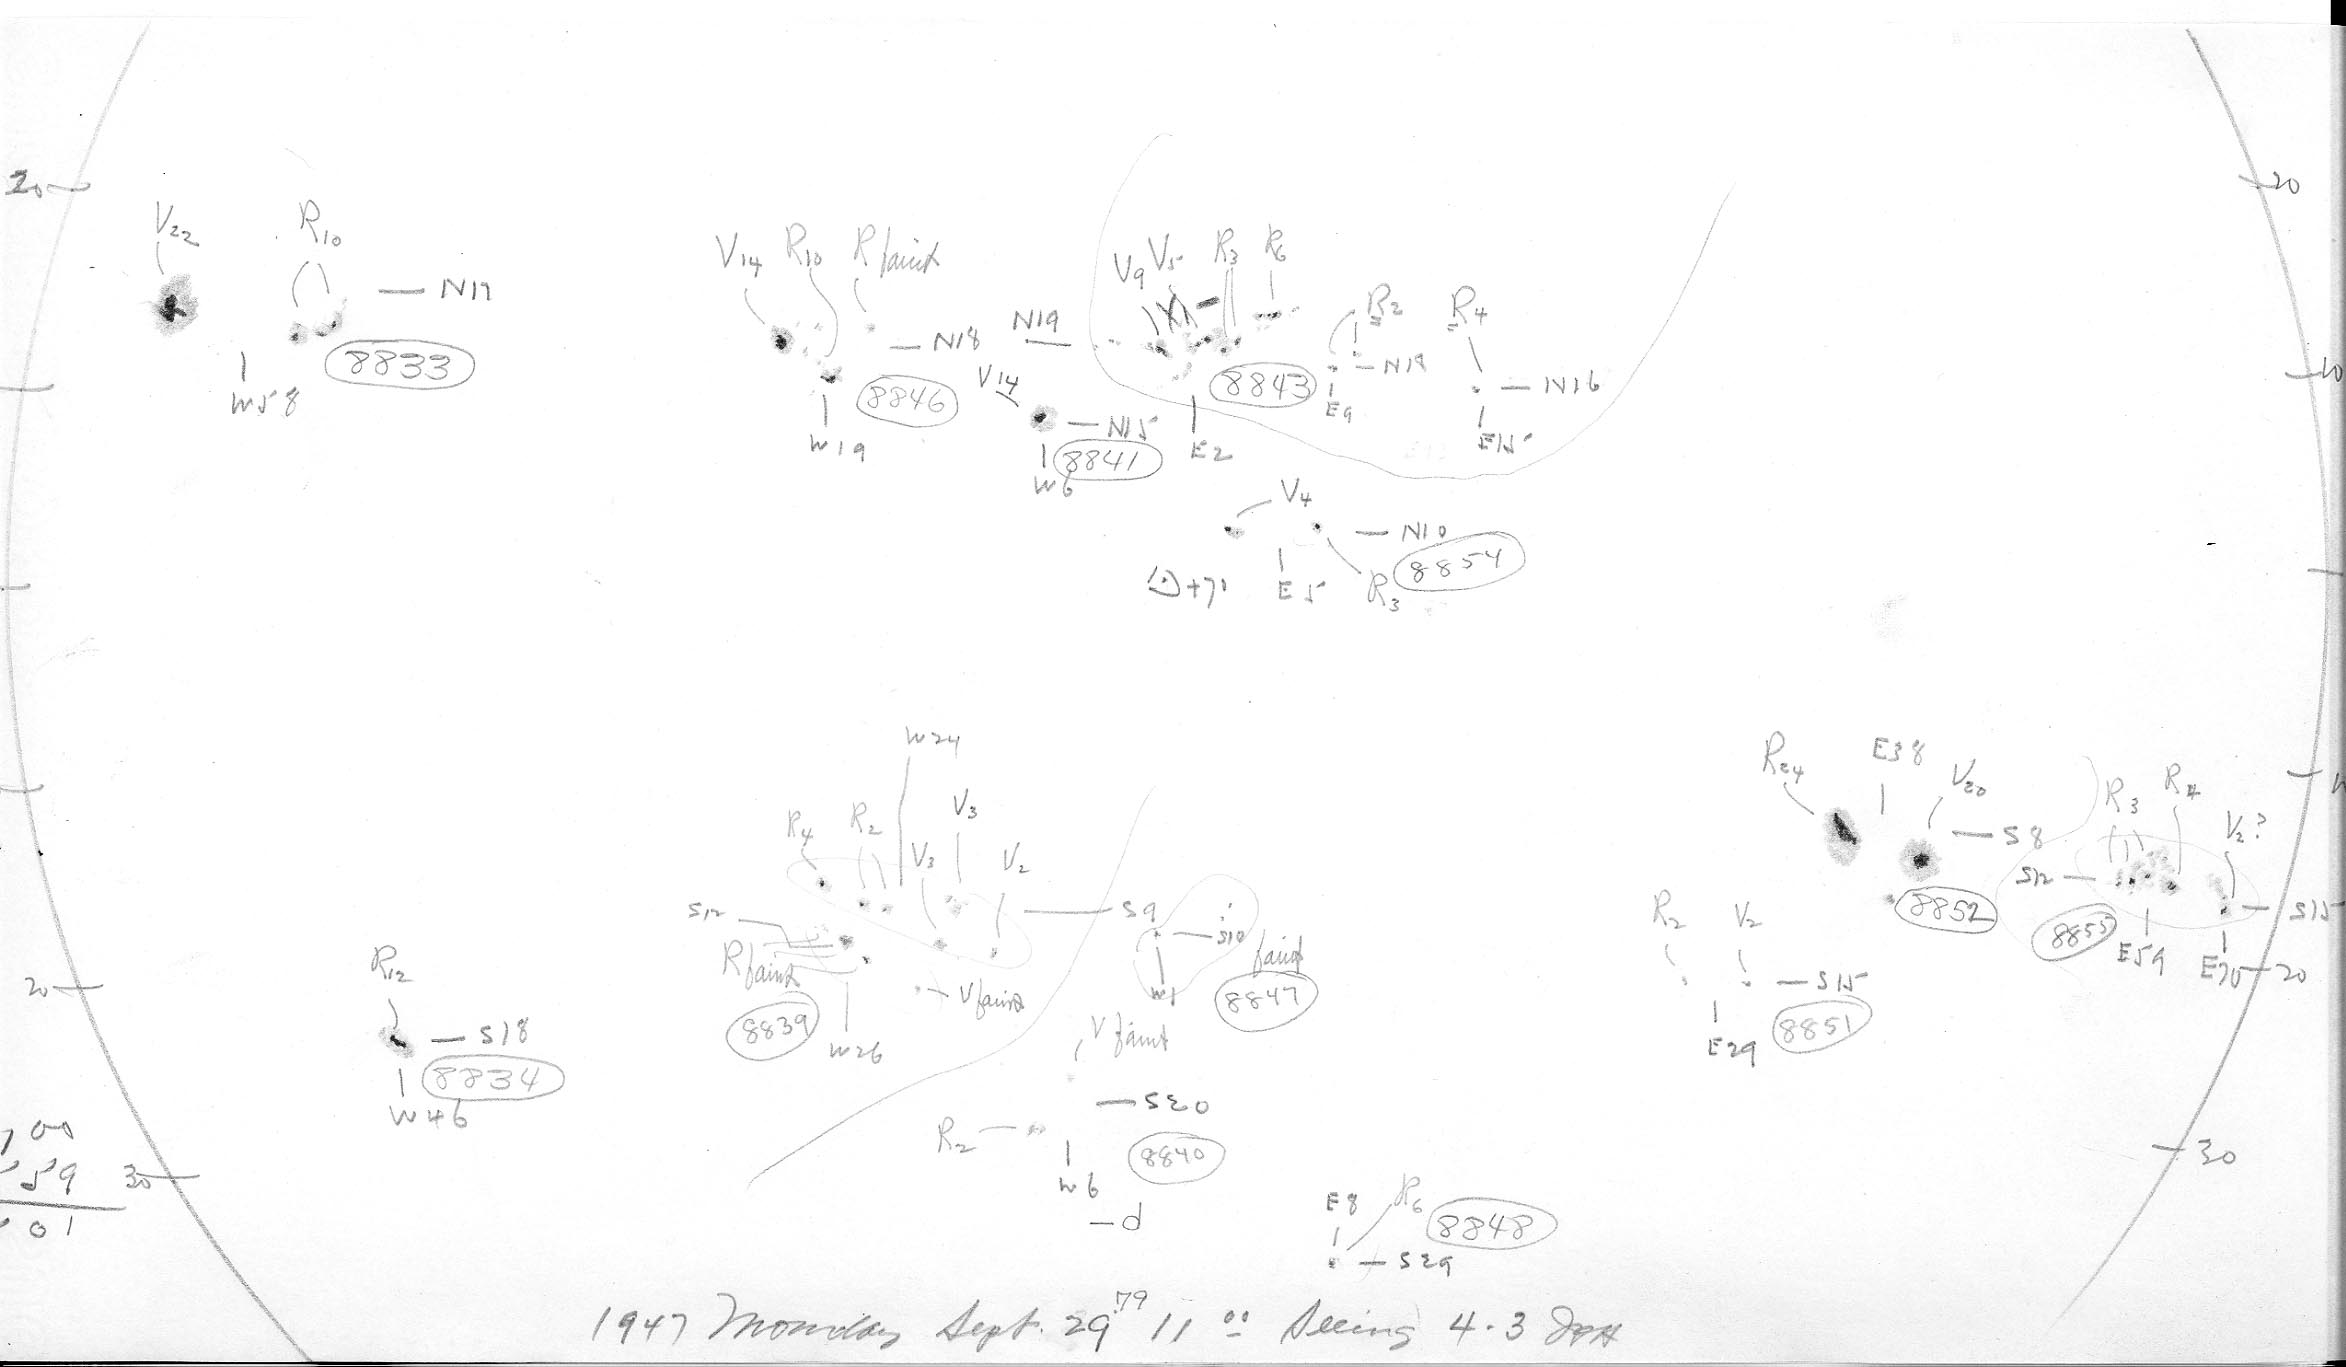 20
20
V22
R10
N17
8833
W58
V14 R10 R faint
N18
8846
W19
N19
V14
N15
8841
W6
V9 V5 R3 R6
8843
E2
R2
N19
E9
R4
N16
E15
10
V4
N10
8854
E5
R3
W24
R4
R2
V3
V3
V2
S9
S12
R faint
V faint
8839
W26
S10
W1
faint
8847
V faint
S20
R2
8840
W6
-d
E8
R6
8848
S29
R12
S18
8834
W46
20
30
59
01
R24
E38
V20
S8
8852
R2
V2
S15
8851
E29
R3
R4
V2?
S12
S15
8855
E59
E70
20
30
1947 Monday Sept. 29.79 11 00 Seeing 4-3